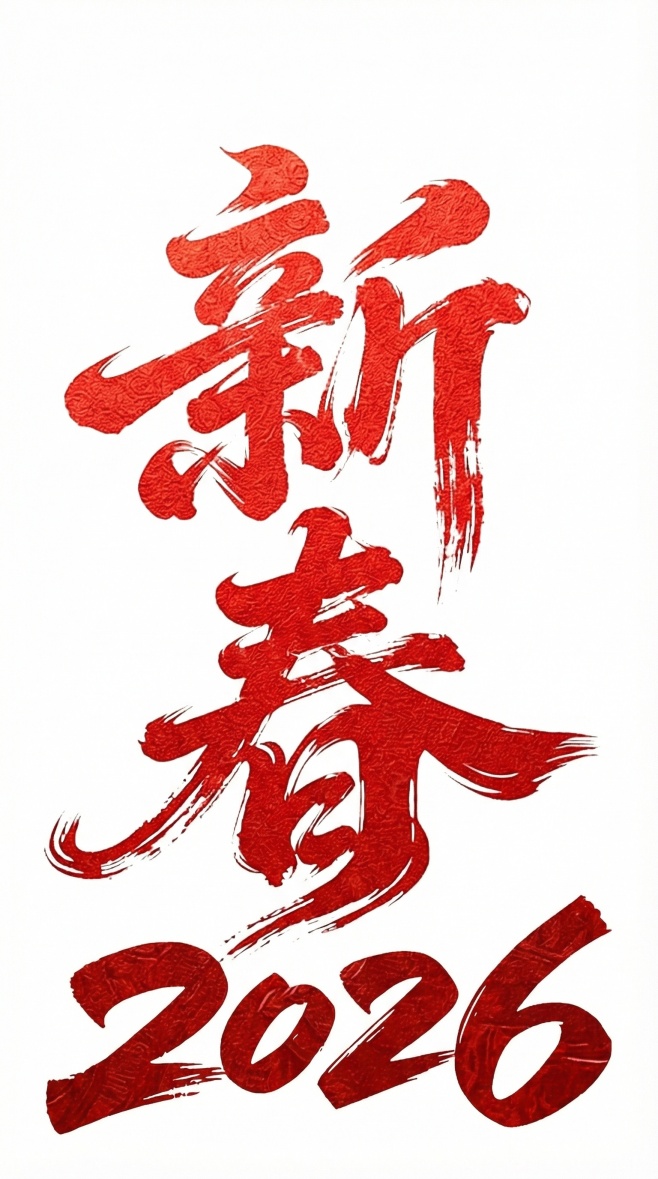 新
春
2026